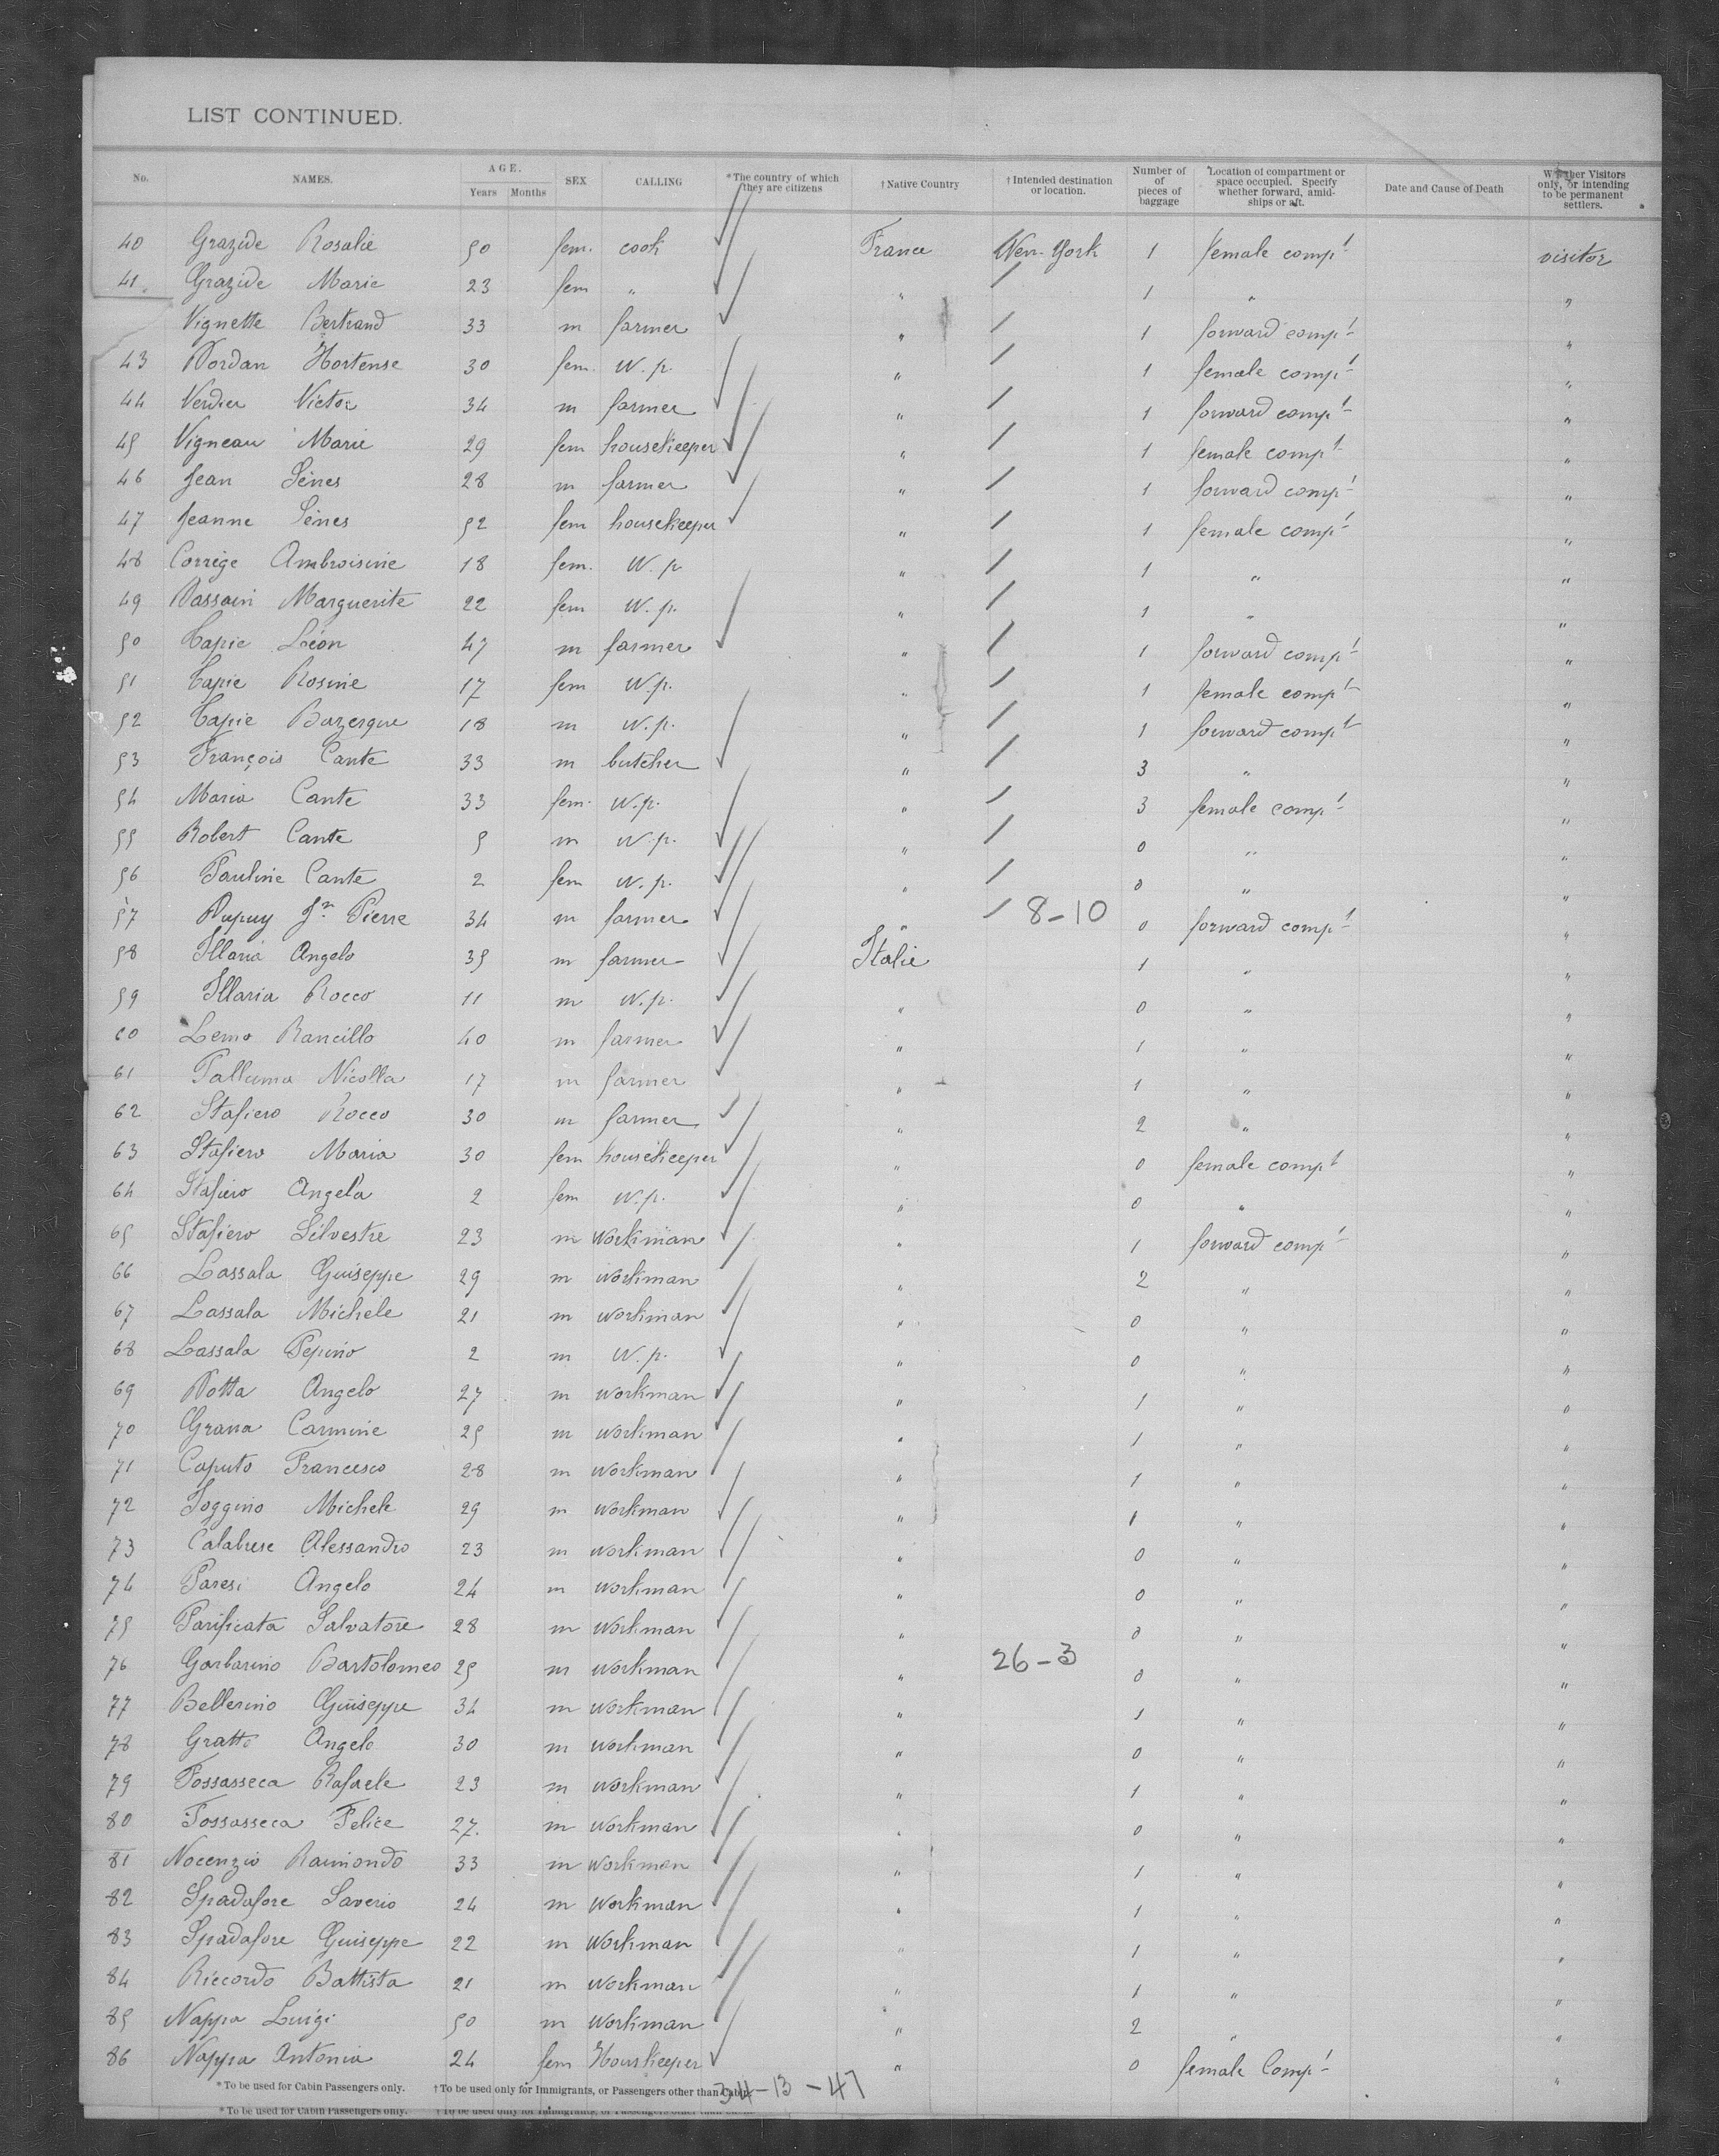 LIST CONTINUED.
No. NAMES. AGE. Years Months SEX CALLING *The country of which they are citizens †Native Country †Intended destination or location. Number of of pieces of baggage Location of compartment or space occupied. Specify whether forward, amidships or aft. Date and Cause of Death Whether Visitors only, or intending to be permanent settlers.
40 Grazide Rosalie 50 fem. cook France New-York 1 female compt visitor
41 Grazide Marie 23 fem " " / 1 " "
Vignette Bertrand 33 m farmer " / 1 forward compt "
43 Dordan Hortense 30 fem. W.p. " / 1 female compt "
44 Verdier Victor 34 m farmer " / 1 forward compt "
45 Vigneau Marie 29 fem housekeeper " / 1 female compt "
46 Jean Sènes 28 m farmer " / 1 forward compt "
47 Jeanne Sènes 52 fem housekeeper " / 1 female compt "
48 Corrège Ambroisine 18 fem. W.p " / 1 " "
49 Dassain Marguerite 22 fem W.p. " / 1 " "
50 Tapie Léon 47 m farmer " / 1 forward compt "
51 Tapie Rosine 17 fem W.p. " / 1 female compt "
52 Tapie Bazergue 18 m W.p. " / 1 forward compt "
53 François Cante 33 m butcher " / 3 " "
54 Maria Cante 33 fem. W.p. " / 3 female compt "
55 Robert Cante 5 m W.p. " / 0 " "
56 Pauline Cante 2 fem W.p. " / 0 " "
57 Dupuy Jn Pierre 34 m farmer " / 8-10 0 forward compt "
58 Illaria Angelo 35 m farmer Italie 1 " "
59 Illaria Rocco 11 m W.p. " 0 " "
60 Lemo Rancillo 40 m farmer " 1 " "
61 Palluma Nicolla 17 m farmer " 1 " "
62 Stafiero Rocco 30 m farmer " 2 " "
63 Stafiero Maria 30 fem housekeeper " 0 female compt "
64 Stafiero Angela 2 fem W.p. " 0 " "
65 Stafiero Silvestre 23 m workman " 1 forward compt "
66 Lassala Guiseppe 29 m workman " 2 " "
67 Lassala Michele 21 m workman " 0 " "
68 Lassala Pepino 2 m W.p. " 0 " "
69 Dotta Angelo 27 m workman " 1 " "
70 Grana Carmine 25 m workman " 1 " "
71 Caputo Francesco 28 m workman " 1 " "
72 Foggino Michele 29 m workman " 1 " "
73 Calabrese Alessandro 23 m workman " 0 " "
74 Paresi Angelo 24 m workman " 0 " "
75 Parificata Salvatore 28 m workman " 0 " "
76 Garbarino Bartolomeo 25 m workman " 26-3 0 " "
77 Bellerino Guiseppe 34 m workman " 1 " "
78 Gratto Angelo 30 m workman " 0 " "
79 Fossasseca Rafaele 23 m workman " 1 " "
80 Fossasseca Felice 27. m workman " 0 " "
81 Nocenzio Raimondo 33 m workman " 1 " "
82 Spadafore Saverio 24 m workman " 1 " "
83 Spadafore Guiseppe 22 m workman " 1 " "
84 Riccordo Battista 21 m workman " 1 " "
85 Nappa Luigi 50 m workman " 2 " "
86 Nappa Antonia 24 fem Hourkeeper " 0 female Compt "
*To be used for Cabin Passengers only. †To be used only for Immigrants, or Passengers other than Cabin.
34-13-47
*To be used for Cabin Passengers only. †To be used only for Immigrants, or Passengers other than Cabin.